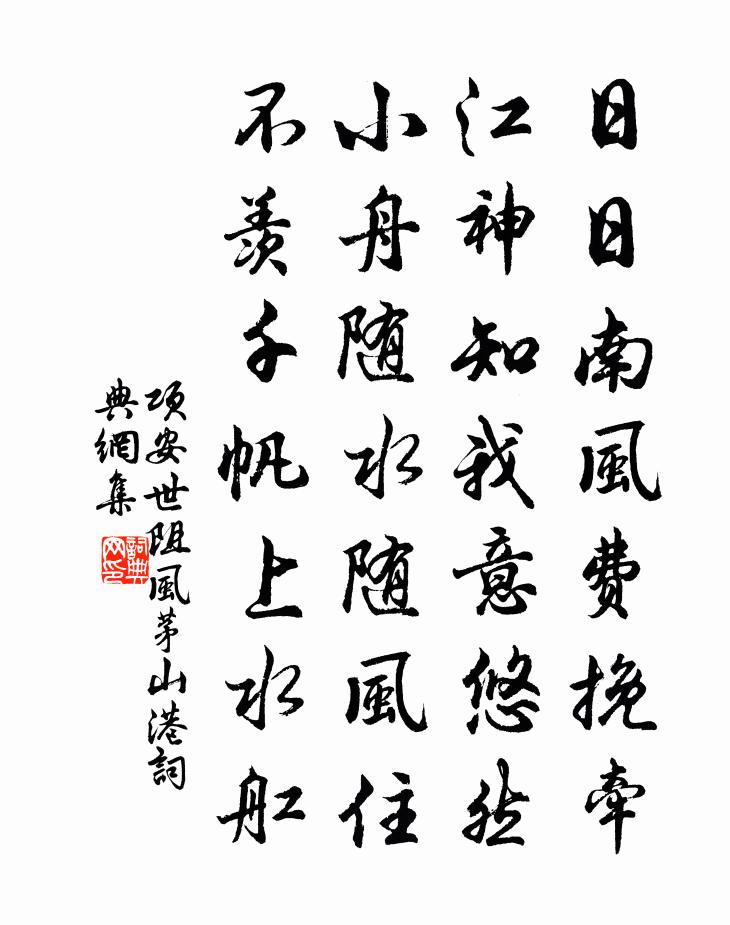 日日南風費挽牽
江神知我意悠然
小舟随水随風住
不羨千帆上水舡
项安世阻風茅山港詞
典網集
詞典
网印